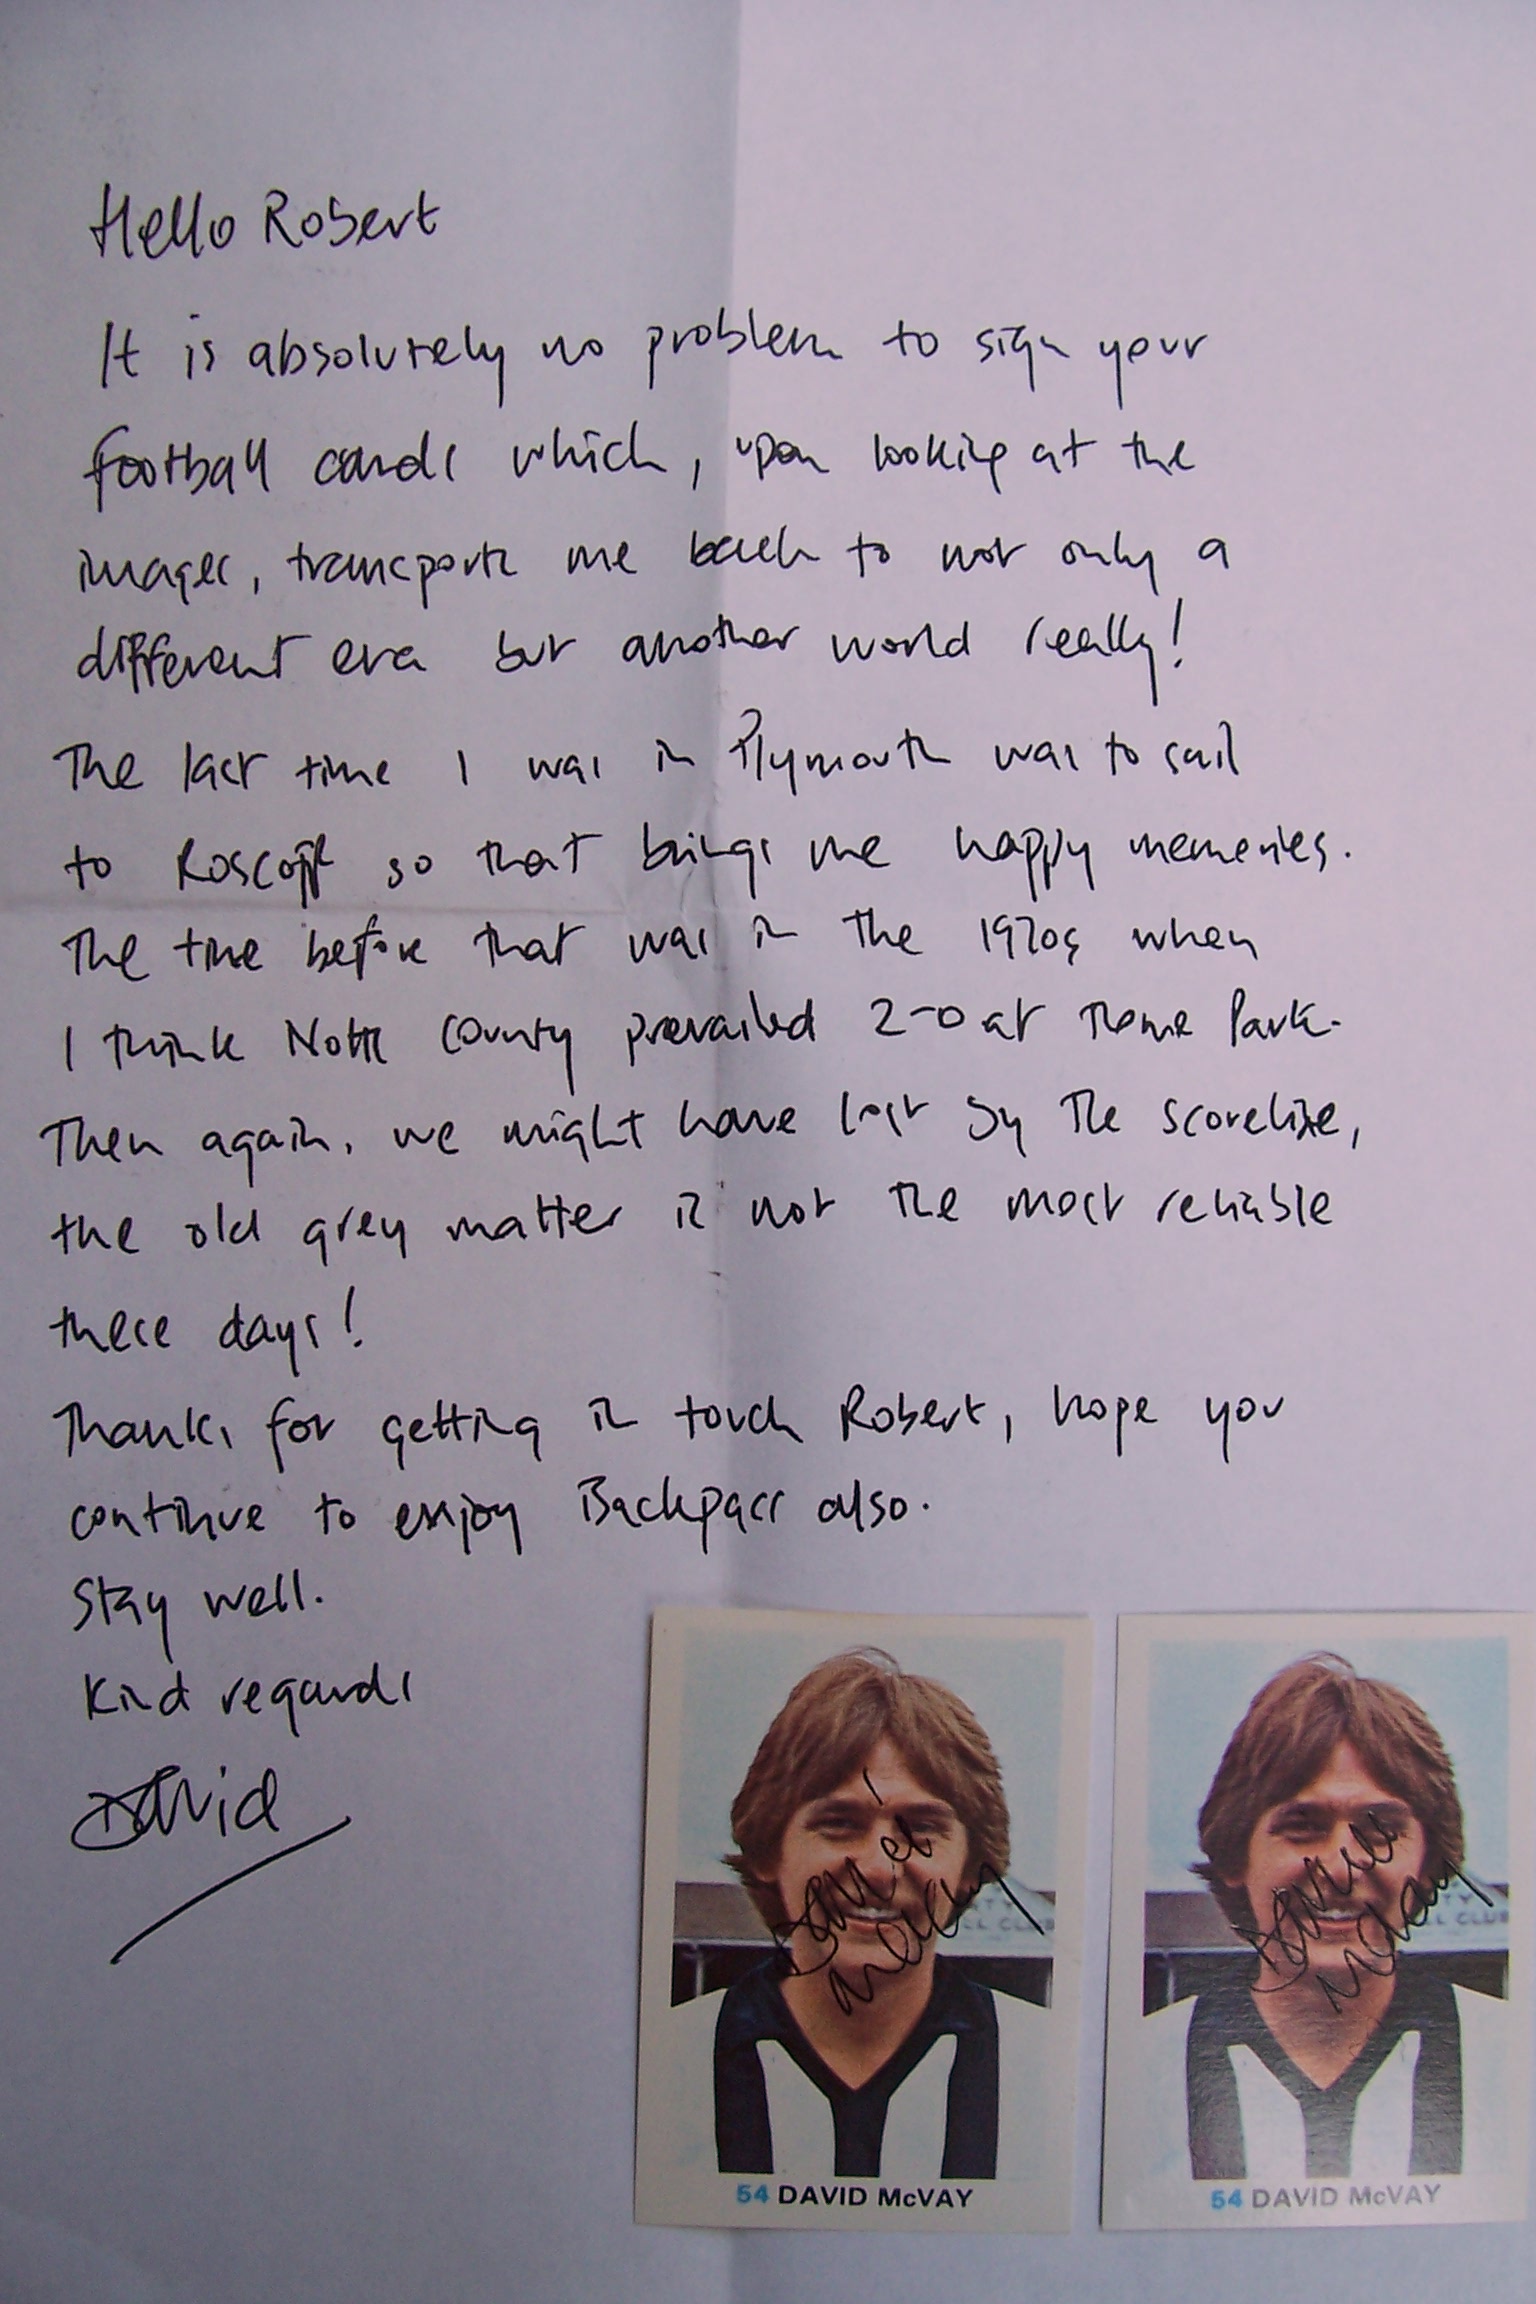 Hello Robert
It is absolutely no problem to sign your
football cards which, upon looking at the
images, transports me back to not only a
different era but another world really!
The last time I was in Plymouth was to sail
to Roscoff so that brings me happy memories.
The time before that was in the 1970s when
I think Notts County prevailed 2-0 at Home Park.
Then again, we might have lost by the scoreline,
the old grey matter is not the most reliable
these days!
Thanks for getting in touch Robert, hope you
continue to enjoy Backpass also.
Stay well.
Kind regards
David
David McVay
David McVay
TY
LL CLUB
TY
LL CLUB
54 DAVID McVAY
54 DAVID McVAY